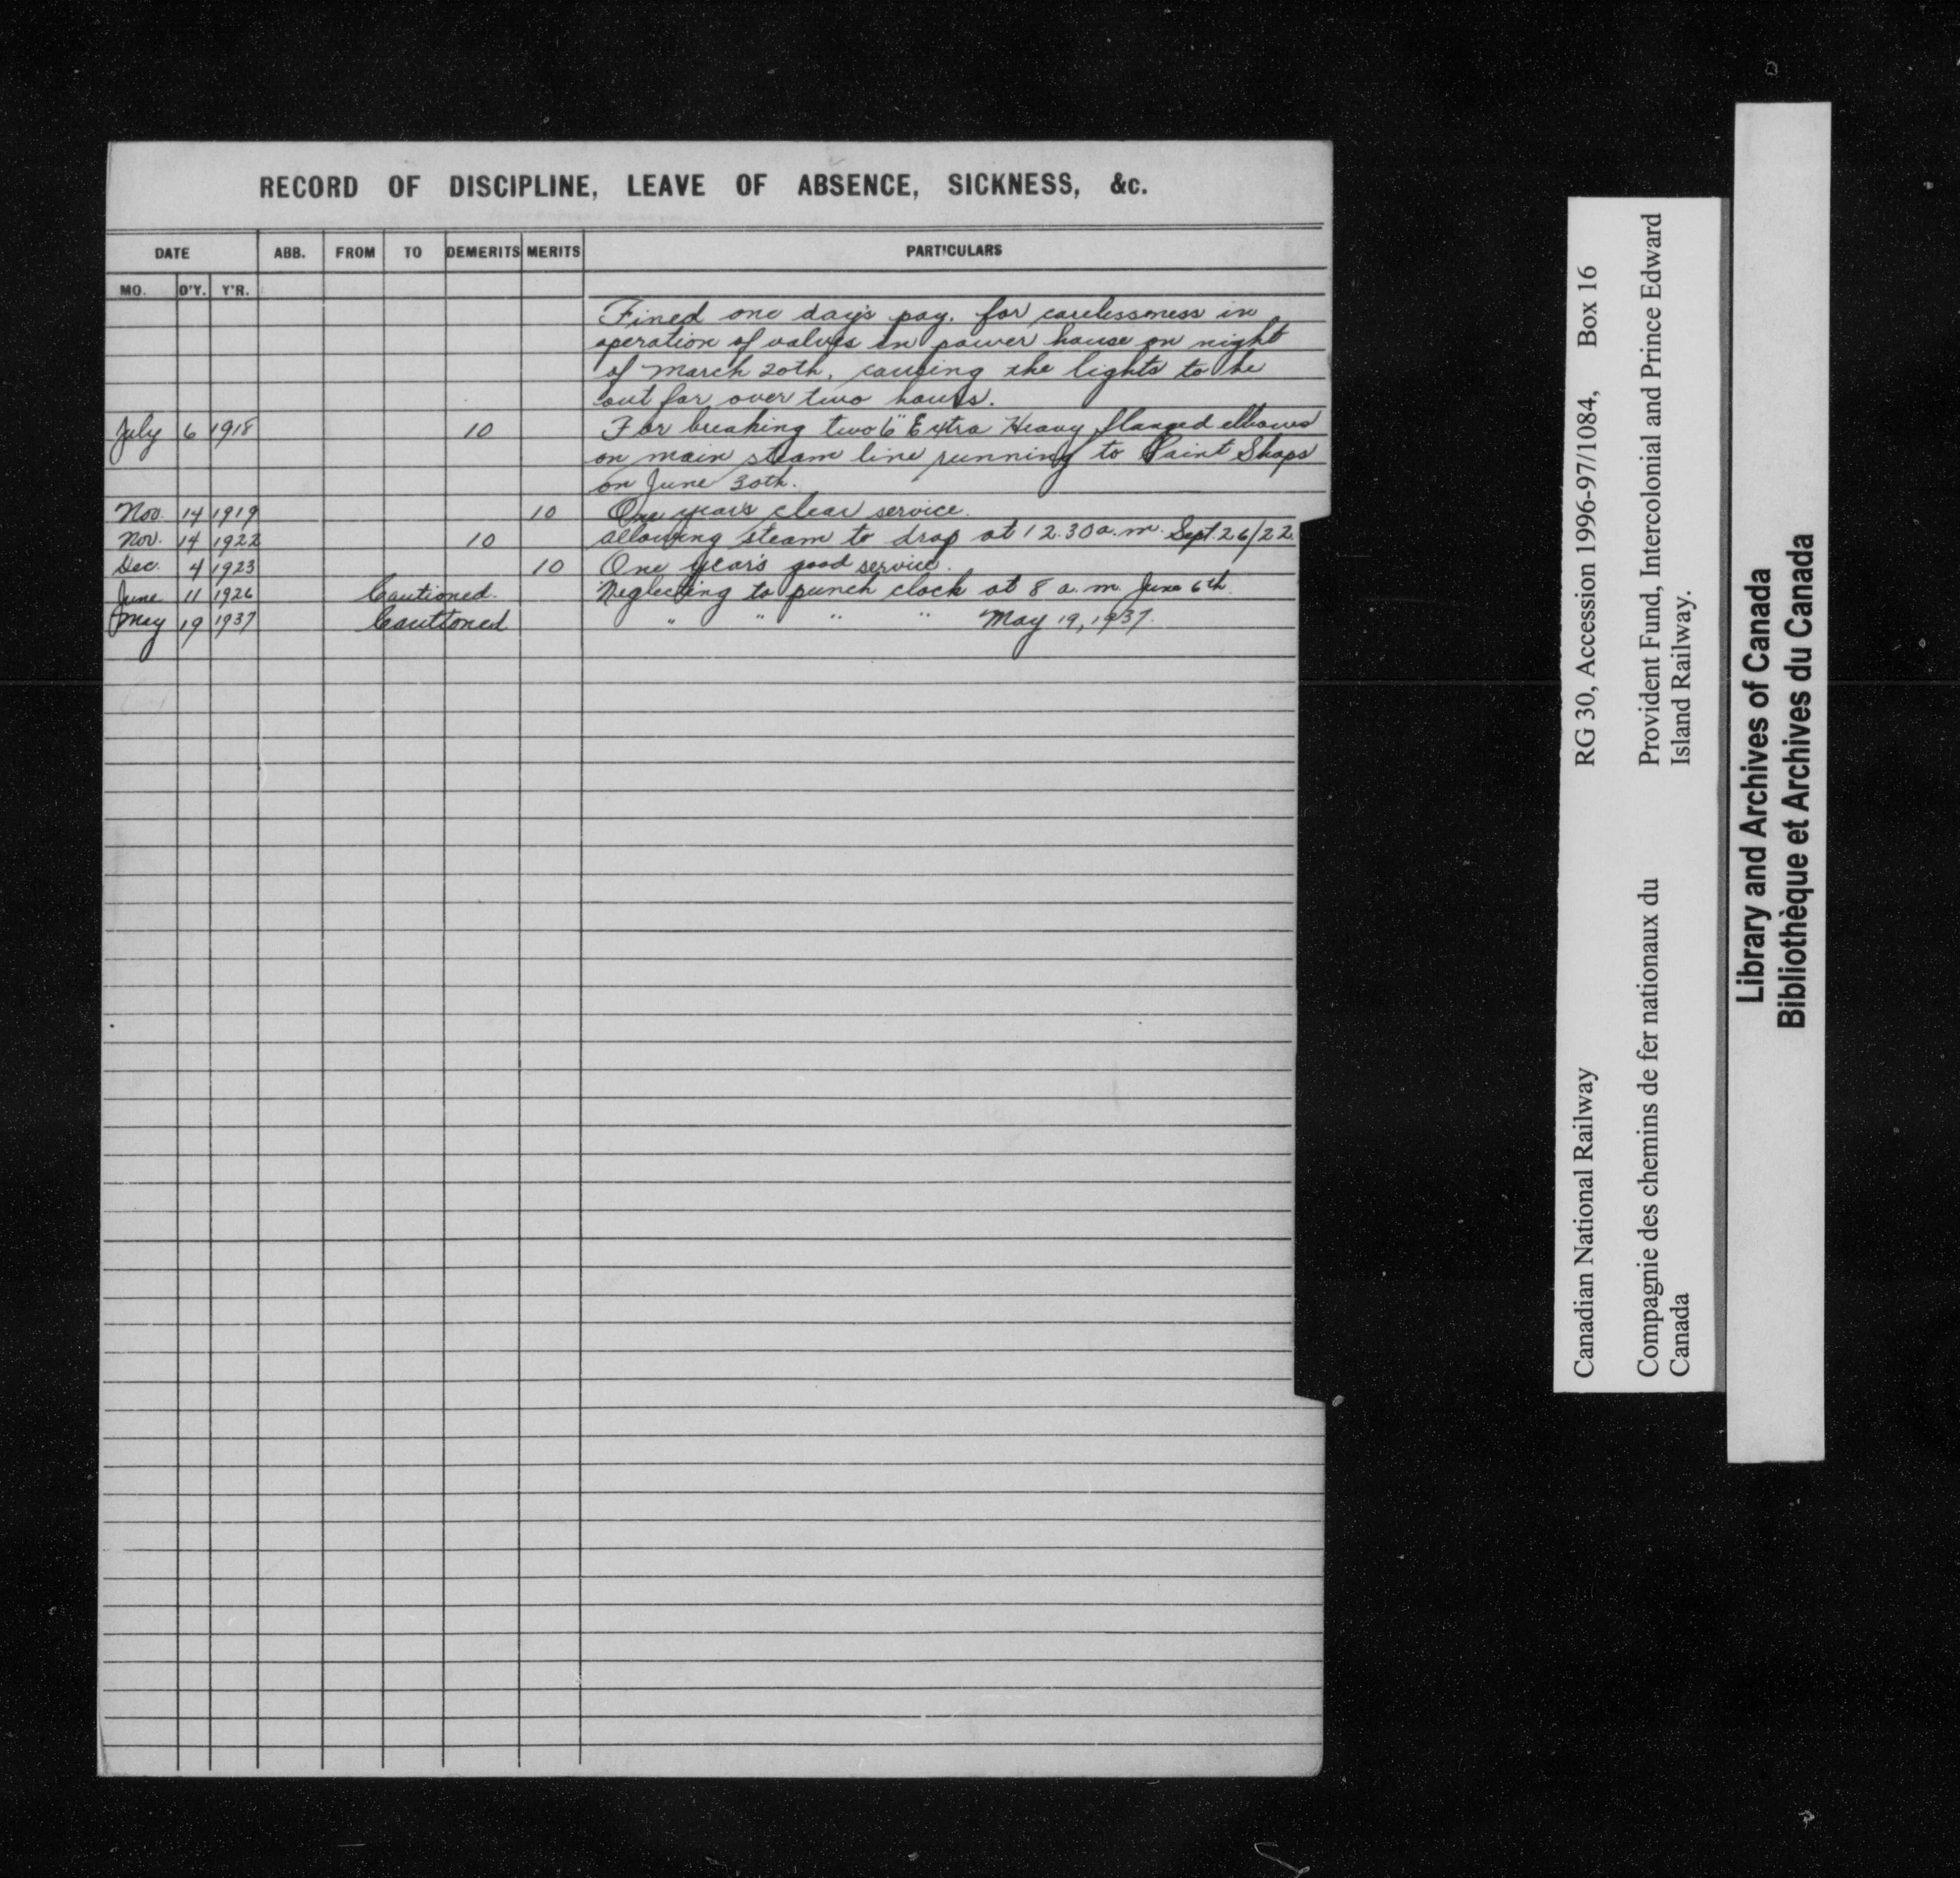 RECORD OF DISCIPLINE, LEAVE OF ABSENCE, SICKNESS, &c.
DATE ABB. FROM TO DEMERITS MERITS PARTICULARS
MO. D'Y. Y'R.
Fined one day's pay, for carelessness in
operation of valves in power house on night
of March 20th, causing the lights to be
out for over two hours.
July 6 1918 10 For breaking two 6" Extra Heavy flanged elbows
on main steam line running to Paint Shops
on June 30th.
Nov. 14 1919 10 One year's clear service.
Nov. 14 1922 10 allowing steam to drop at 12.30 a.m. Sept. 26/22.
Dec. 4 1923 10 One year's good service.
June 11 1926 Cautioned. Neglecting to punch clock at 8 a.m. June 6th.
May 19 1937 Cautioned " " " " May 19, 1937.
Canadian National Railway RG 30, Accession 1996-97/1084, Box 16
Compagnie des chemins de fer nationaux du Provident Fund, Intercolonial and Prince Edward
Canada Island Railway.
Library and Archives of Canada
Bibliothèque et Archives du Canada